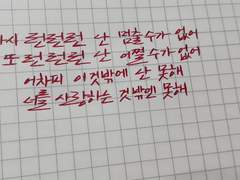 런런런 난 멈출 수가 없어
또 런런런 난 어쩔 수가 없어
어차피 이것밖에 난 못해
너를 사랑하는 것밖엔 못해